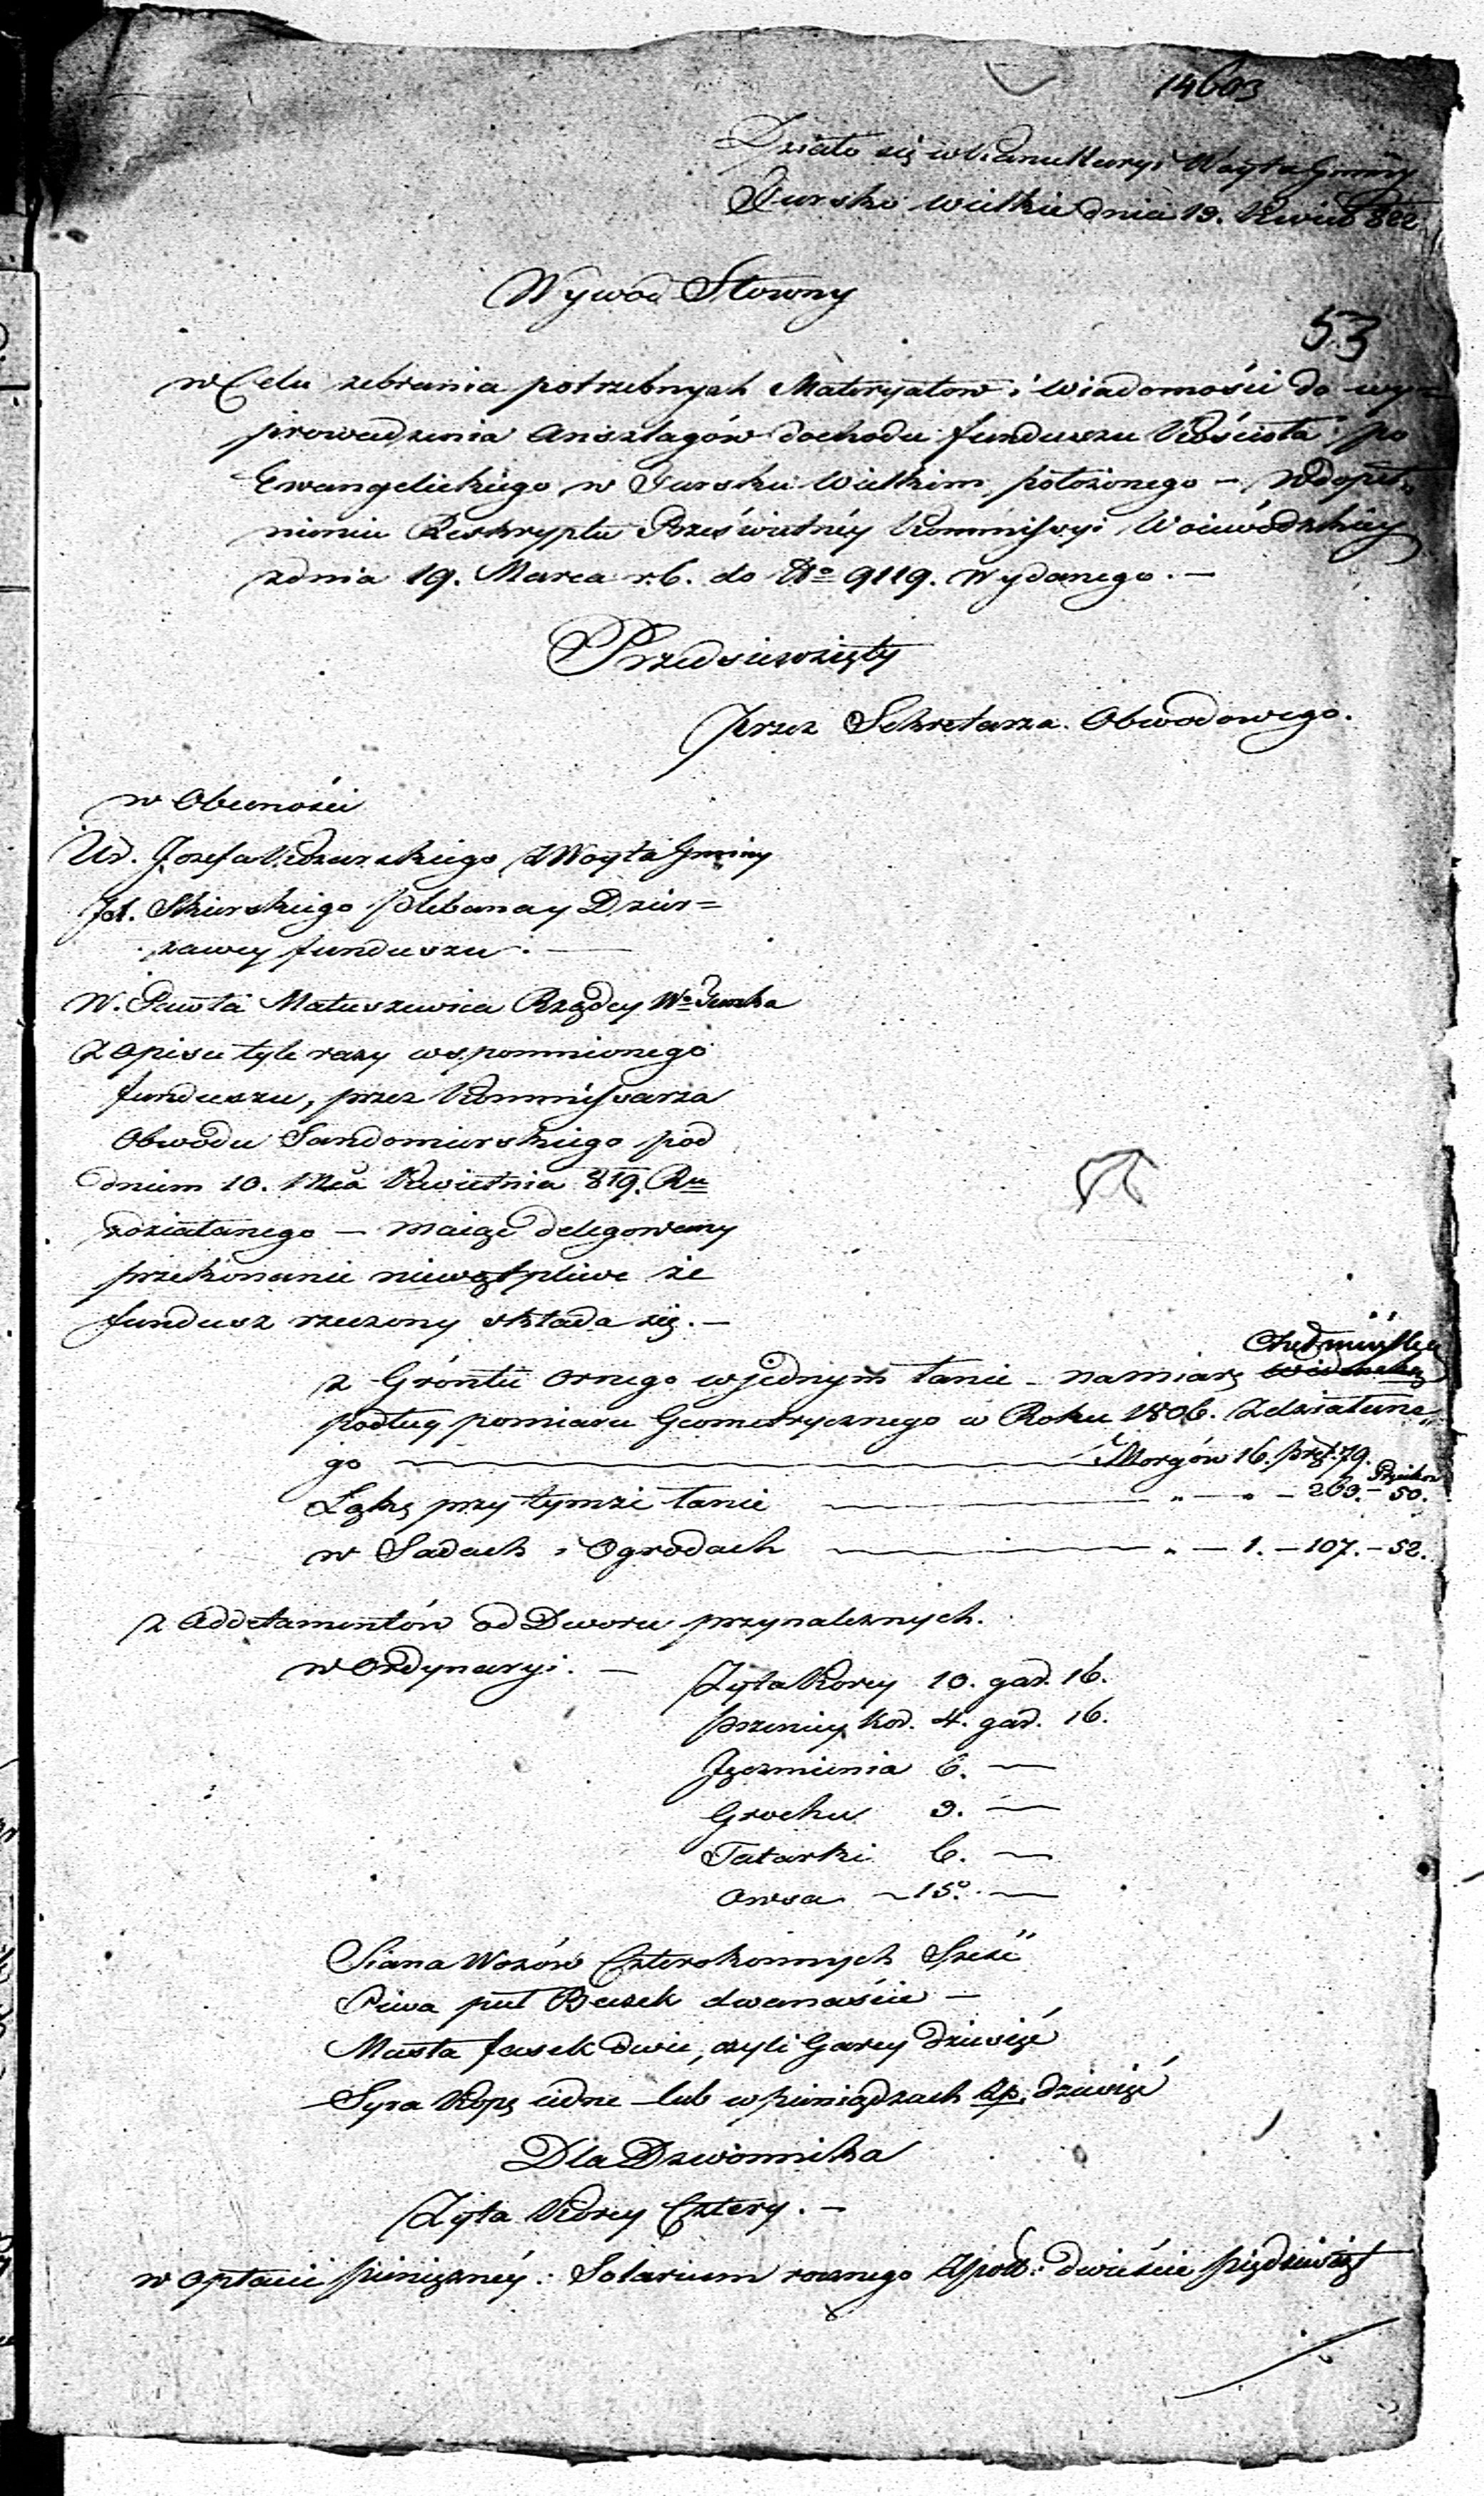 14603
Działo się w Kancellaryi Woyta Gminy
Tursko Wielkie dnia 19. Kwiet. 822
Wywód Słowny
53
w Celu zebrania potrzebnych Materyałow i wiadomości do wy=
prowadzenia Anszlagów dochodu funduszu Kościoła po
Ewangelickiego w Tursku Wielkim położonego – w dopeł=
nieniu Reskryptu Prześwietnéy Kommissyi Woiewódzkiey
z dnia 19. Marca r. b. do No 9119. Wydanego. –
Przedsiewzięty
przez Sekretarza Obwodowego.
w Obecności
Ur. Jozefa Woyta Gminy
Skurskiego Plebana y Dzier=
zawcy funduszu. –
W. Pawła Matuszewica Rządcy Wo Turska
Z opisu tyle razy wspomnionego
funduszu, przez Kommissarza
Obwodu Sandomirskiego pod
dniem 10. Mca Kwietnia 819. Ru
zdziałanego – maiąc delegowany
przekonanie niewątpliwe że
fundusz rzeczony składa się. –
Chełmińską
z Gróntu ornego w jednym łanie – na miarę
podług pomiaru Geometrycznego w Roku 1806. Zdziałane=
go — Morgów 16. pręt. 79.
Pręcików
Łąkę przy tymże łanie — " — " – 263. – 50.
w Sadach i Ogrodach — " – 1. – 107. – 52.
z Addetamentów od Dworu przynależnych.
w Ordynaryi. –
Zyta Korcy 10. gar. 16.
Pszenicy Kor. 4. gar. 16.
Jęczmienia 6. —
Grochu 3. —
Tatarki 6. —
Owsa – 15. —
Siana Wozów Czterokonnych Sześć
Piwa puł Beczek dwanaście –
Masła fasek dwie, czyli Garcy dziewięć
Syra Kopę iedne – lub w pieniądzach zp. dziewięć
Dla Dzwonnika
Zyta Korcy Cztery. –
w Opłacie pieniężnéy: Solarium rocznego Zpol: dwieście pięćdziesiąt